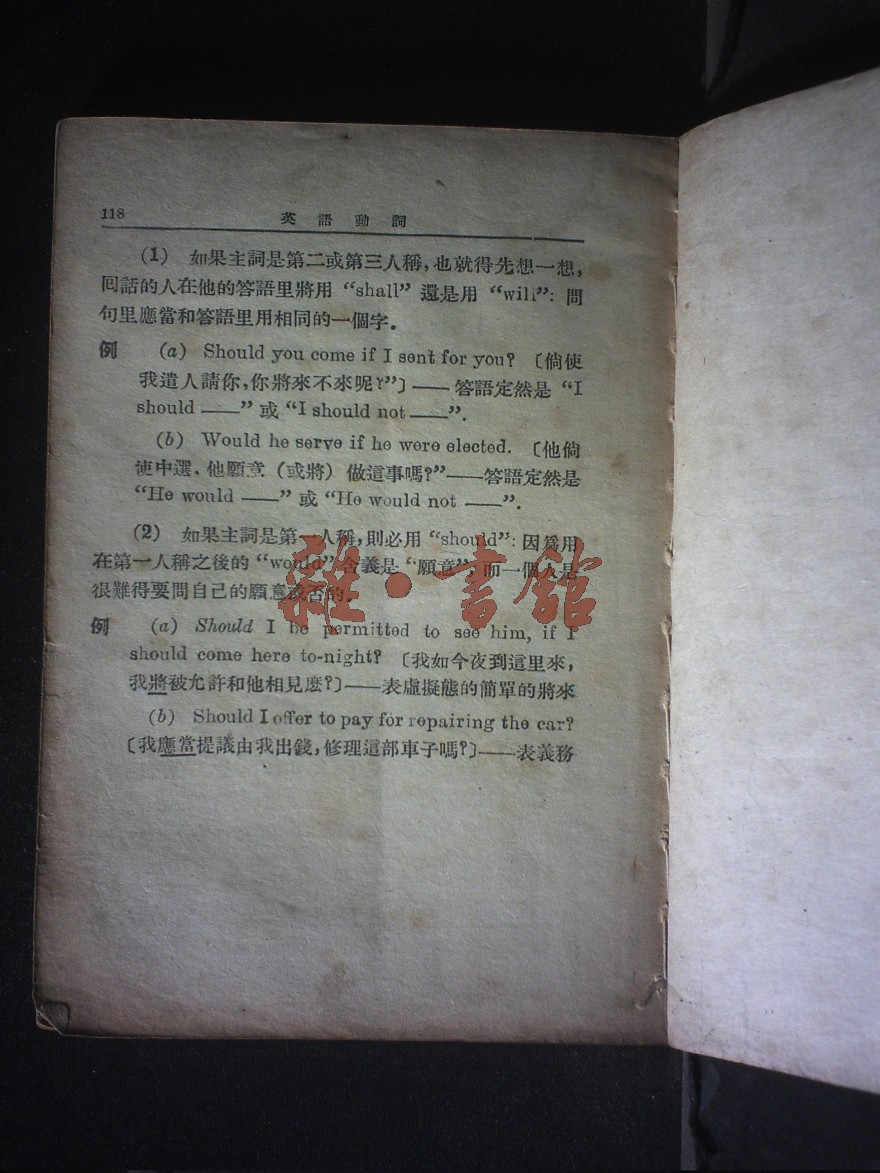 118
英語動詞
(1) 如果主詞是第二或第三人稱,也就得先想一想,
囘話的人在他的答語里將用 “shall” 還是用 “will”: 問
句里應當和答語里用相同的一個字。
例 (a) Should you come if I sent for you? 〔倘使
我遣人請你,你將來不來呢?”〕—— 答語定然是 “I
should ——” 或 “I should not ——”.
(b) Would he serve if he were elected. 〔他倘
使中選、他願意 (或將) 做這事嗎?”——答語定然是
“He would ——” 或 “He would not ——”.
(2) 如果主詞是第一人稱,則必用 “should”: 因爲用
在第一人稱之後的 “would” 含義是 “願意” 而一個人是
很難得要問自己的願意或否的。
雜·書館
例 (a) Should I be permitted to see him, if I
should come here to-night? 〔我如今夜到這里來,
我將被允許和他相見麽?〕——表虛擬態的簡單的將來
(b) Should I offer to pay for repairing the car?
〔我應當提議由我出錢,修理這部車子嗎?〕——表義務